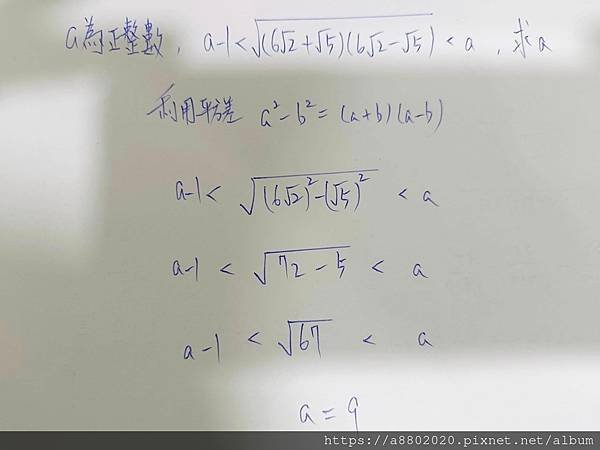 a為正整數, a-1<√(6√2+√5)(6√2-√5) < a , 求a
利用平方差 a²-b²=(a+b)(a-b)
a-1< √(6√2)²-(√5)² < a
a-1 < √72-5 < a
a-1 < √67 < a
a=9
https://a8802020.pixnet.net/album